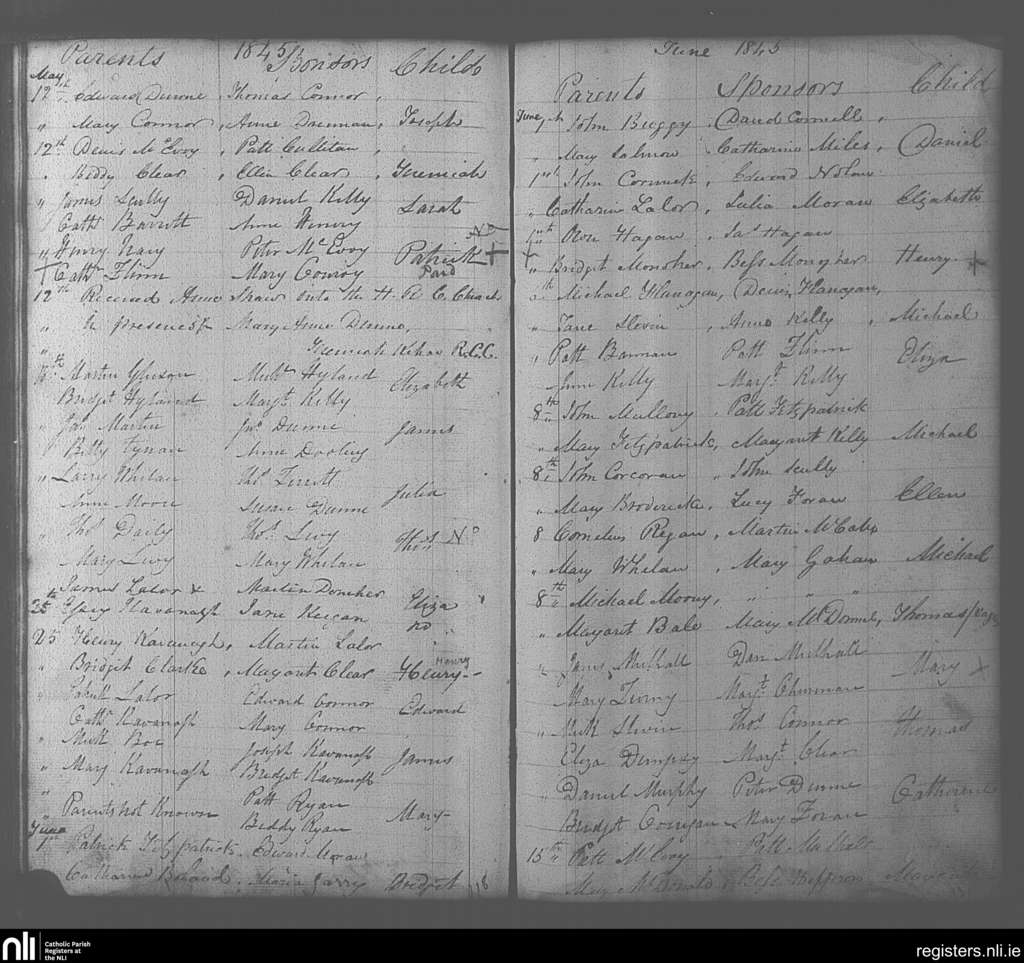 Parents 1845 Sponsors Child
May
12th Edward Dunne, Thomas Connor,
" Mary Connor, Anne Drennan, Joseph
12th Denis McEvoy, Patt Culliton,
" Biddy Clear, Ellen Clear, Jeremiah
" James Scully Daniel Kelly
Cath Barrett Anne Henery Sarah
" Henry Nary Peter McEvoy Patrick No
+ Cath Flinn Mary Conroy Paid +
12th Received Anne Shaw into the H. R. C. Church
" In presence of Mary Anne Dunne,
" Jeremiah R.C.C.
Martin Mich Hyland Elizabeth
Bridget Hyland Margt Kelly
" Jas Martin Jno Dunne James
Bitty Tynan Anne Dooling
" Larry Whelan Thos
Anne Moore Susan Dunne Julia
" Thos Daily Thos Levy Thos No
Mary Levy Mary Whelan
James Lalor x Martin Eliza
25th Kavanagh Jane Keegan No
25 Henry Kavanagh, Martin Lalor
" Bridgit Clarke, Margaret Clear Henry Henry
" Patrick Lalor Edward Connor Edward
Cath Kavanagh Mary Connor
" Mick Joseph Kavanagh James
" Mary Kavanagh Bridget Kavanagh
" Parents not Known Patt Ryan Mary
Biddy Ryan
June
1st Patrick Fitzpatrick, Edward Moran
Catharine Maria Bridget 118
June 1845
Parents Sponsors Child
June, John Buggy, David Connell,
" Mary Salmon Catharine Miles, Daniel
1st John Cormick, Edward Nolan
" Catharine Lalor, Julia Moran Elizabeth
Hagan, Jas Hagan
+ " Bridget Monaher, Bess Monagher Henry +
Michael Flanagan, Denis Flanagan,
" Jane Slevin, Anne Kelly, Michael
" Patt Bannan Patt Flinn Eliza
Anne Kelly Margt Kelly
8th John Mullony, Patt Fitzpatrick
" Mary Fitzpatrick, Margaret Kelly Michael
8th John Corcoran " John Scully
" Mary Broderick, Lucy Foran Ellen
8 Cornelius Regan, Martin McCabe
" Mary Whelan, Mary Gahan Michael
8th " Michael Moony, " " "
" Margaret Bale Mary McDonnel, Thomas
" James Mulhall Dan Mulhall Mary x
Mary Margt
" Mick Slevin Thos Connor Thomas
Eliza Dempsey Margt Clear
" Daniel Murphy Peter Dunne Catharine
Bridget Corrigan Mary Foran
15th " Patt McEvoy Patt Mulhall
Mary Bess Heffernan
nli Catholic Parish Registers at the NLI
registers.nli.ie